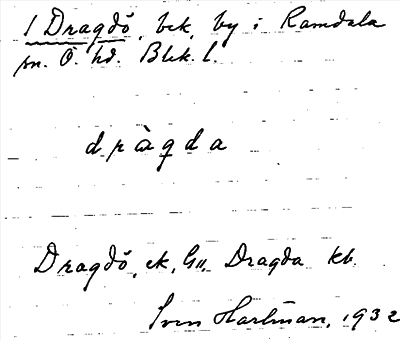 1 Dragdö, bek, by i Ramdala
sn. Ö. hd. Blek. l.
dràgda
Dragdö, ek, Gu, Dragda kb.
Sven Hartman, 1932